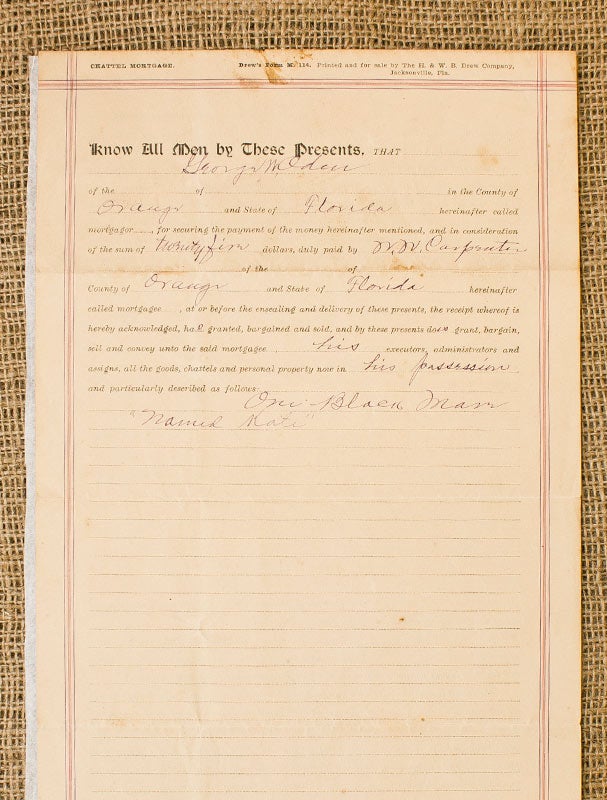 CHATTEL MORTGAGE. Drew's Form No. 114. Printed and for sale by The H. & W. B. Drew Company,
Jacksonville, Fla.
Know All Men by These Presents, THAT
George W
of the of in the County of
Orange and State of Florida hereinafter called
mortgagor , for securing the payment of the money hereinafter mentioned, and in consideration
of the sum of twenty five dollars, duly paid by W. W. Carpenter
of the of
County of Orange and State of Florida hereinafter
called mortgagee , at or before the ensealing and delivery of these presents, the receipt whereof is
hereby acknowledged, ha granted, bargained and sold, and by these presents does grant, bargain,
sell and convey unto the said mortgagee , his executors, administrators and
assigns, all the goods, chattels and personal property now in his possession
and particularly described as follows:
One Black Mare
"Named Kate"